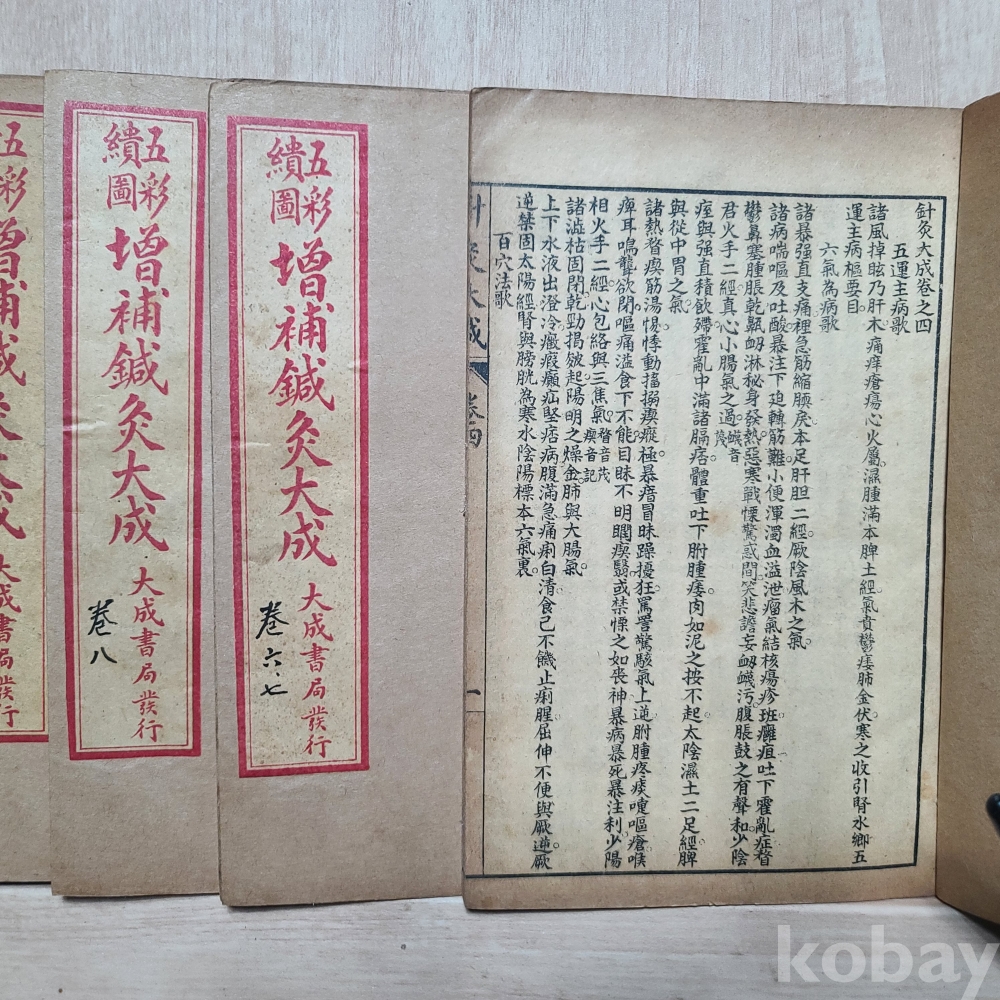 針灸大成卷之四
五運主病歌
諸風掉眩乃肝木痛痒瘡瘍心火屬濕腫滿本脾土經氣賁鬱痿肺金伏寒之收引腎水鄉五
運主病樞要目
六氣為病歌
諸暴强直支痛裡急筋縮腝戾本足肝胆二經厥陰風木之氣
諸病喘嘔及吐酸暴注下迫轉筋難小便渾濁血溢泄瘤氣結核瘍疹班癰疽吐下霍亂症瞀
鬱鼻塞腫脹乾鼽衂淋秘身發熱惡寒戰慄驚惑間笑悲譫妄衂衊污腹脹鼓之有聲和少陰
君火手二經真心小腸氣之過衊音茂
痓與强直積飲殢霍亂中滿諸膈痞體重吐下胕腫痿肉如泥之按不起太陰濕土二足經脾
與從中胃之氣
諸熱瞀瘈筋湯惕悸動搐搦瘈瘲極暴瘖冒昧躁擾狂罵詈驚駭氣上逆胕腫疼痰嚏嘔瘡喉
痺耳鳴聾欲閉嘔痛溢食下不能目昧不明瞤瘈翳或禁慄之如喪神暴病暴死暴注利少陽
相火手二經心包絡與三焦氣瞀音茂瘈音記
諸澁枯固閉乾勁揭皴起陽明之燥金肺與大腸氣
上下水液出澄冷癥瘕癲疝堅痞病腹滿急痛痢白清食己不饑止痢腥屈伸不便與厥逆厥
逆禁固太陽經腎與膀胱為寒水陰陽標本六氣裏
百穴法歌
針灸大成
卷四
一
五彩
繢圖
增補鍼灸大成
大成書局發行
卷六、七
五彩
繢圖
增補鍼灸大成
大成書局發行
卷八
五彩
增補鍼灸大成
大成書局發行
kobay